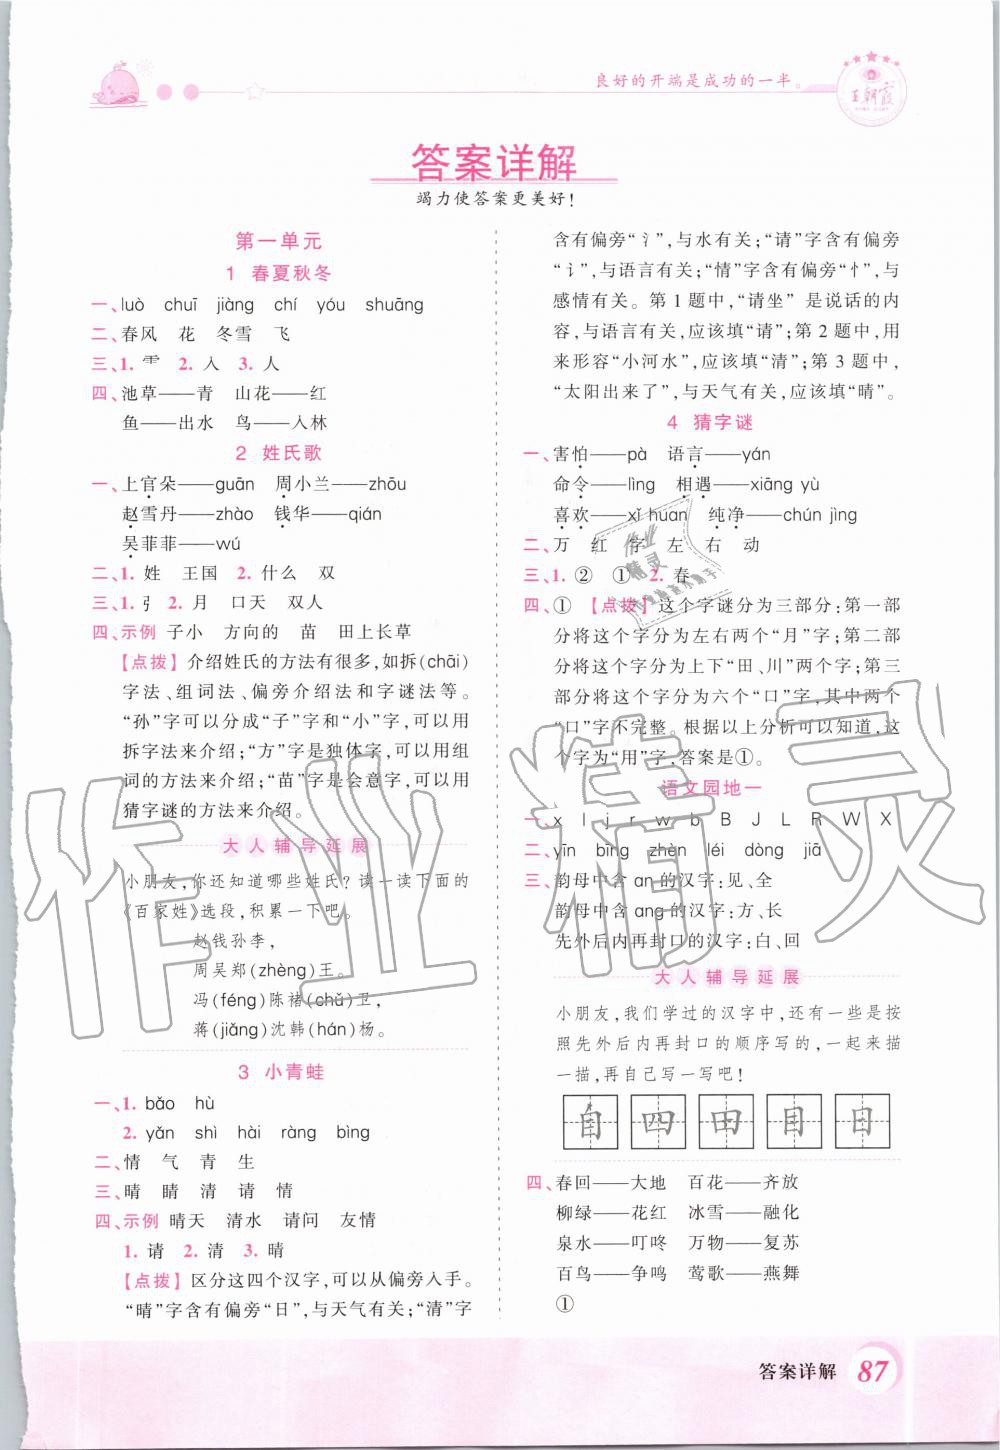 良好的开端是成功的一半。
王朝霞
答案详解
竭力使答案更美好！
第一单元
1 春夏秋冬
一、luò chuī jiàng chí yóu shuāng
二、春风 花 冬雪 飞
三、1. ⻗ 2. 入 3. 人
四、池草——青 山花——红
鱼——出水 鸟——入林
2 姓氏歌
一、上官朵——guān 周小兰——zhōu
赵雪丹——zhào 钱华——qián
吴菲菲——wú
二、1. 姓 王国 2. 什么 双
三、1. 弓 2. 月 口天 双人
四、示例 子小 方向的 苗 田上长草
【点拨】介绍姓氏的方法有很多,如拆(chāi)
字法、组词法、偏旁介绍法和字谜法等。
“孙”字可以分成“子”字和“小”字,可以用
拆字法来介绍;“方”字是独体字,可以用组
词的方法来介绍;“苗”字是会意字,可以用
猜字谜的方法来介绍。
大人辅导延展
小朋友,你还知道哪些姓氏?读一读下面的
《百家姓》选段,积累一下吧。
赵钱孙李,
周吴郑(zhèng)王。
冯(féng)陈褚(chǔ)卫,
蒋(jiǎng)沈韩(hán)杨。
3 小青蛙
一、1. bǎo hù
2. yǎn shì hài ràng bìng
二、情 气 青 生
三、晴 睛 清 请 情
四、示例 晴天 清水 请问 友情
1. 请 2. 清 3. 晴
【点拨】区分这四个汉字,可以从偏旁入手。
“晴”字含有偏旁“日”,与天气有关;“清”字
含有偏旁“氵”,与水有关;“请”字含有偏旁
“讠”,与语言有关;“情”字含有偏旁“忄”,与
感情有关。第 1 题中,“请坐”是说话的内
容,与语言有关,应该填“请”;第 2 题中,用
来形容“小河水”,应该填“清”;第 3 题中,
“太阳出来了”,与天气有关,应该填“晴”。
4 猜字谜
一、害怕——pà 语言——yán
命令——lìng 相遇——xiāng yù
喜欢——xǐ huan 纯净——chún jìng
二、万 红 字 左 右 动
三、1. ② ① 2. 春
四、① 【点拨】这个字谜分为三部分:第一部
分将这个字分为左右两个“月”字;第二部
分将这个字分为上下“田、川”两个字;第三
部分将这个字分为六个“口”字,其中两个
“口”字不完整。根据以上分析可以知道,这
个字为“用”字,答案是①。
语文园地一
一、x l j r w b B J L R W X
二、yīn bīng zhèn léi dòng jiā
三、韵母中含 an 的汉字:见、全
韵母中含 ang 的汉字:方、长
先外后内再封口的汉字:白、回
大人辅导延展
小朋友,我们学过的汉字中,还有一些是按
照先外后内再封口的顺序写的,一起来描
一描,再自己写一写吧!
自 四 田 目 日
四、春回——大地 百花——齐放
柳绿——花红 冰雪——融化
泉水——叮咚 万物——复苏
百鸟——争鸣 莺歌——燕舞
①
答案详解 87
作业精灵